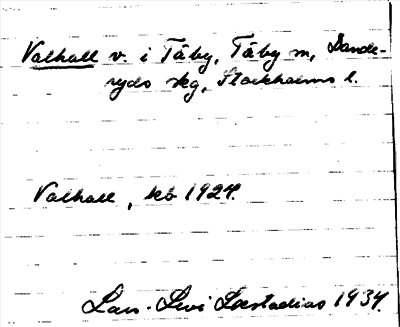 Valhall v. i Täby, Täby sn, Dande-
ryds skg, Stockholms l.
Valhall, kb 1924.
Lars-Levi Læstadius 1934.